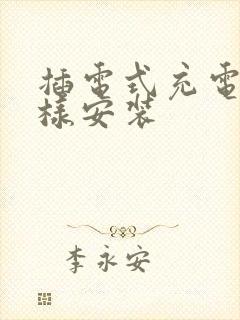 插電式充電
樣安裝
李永安